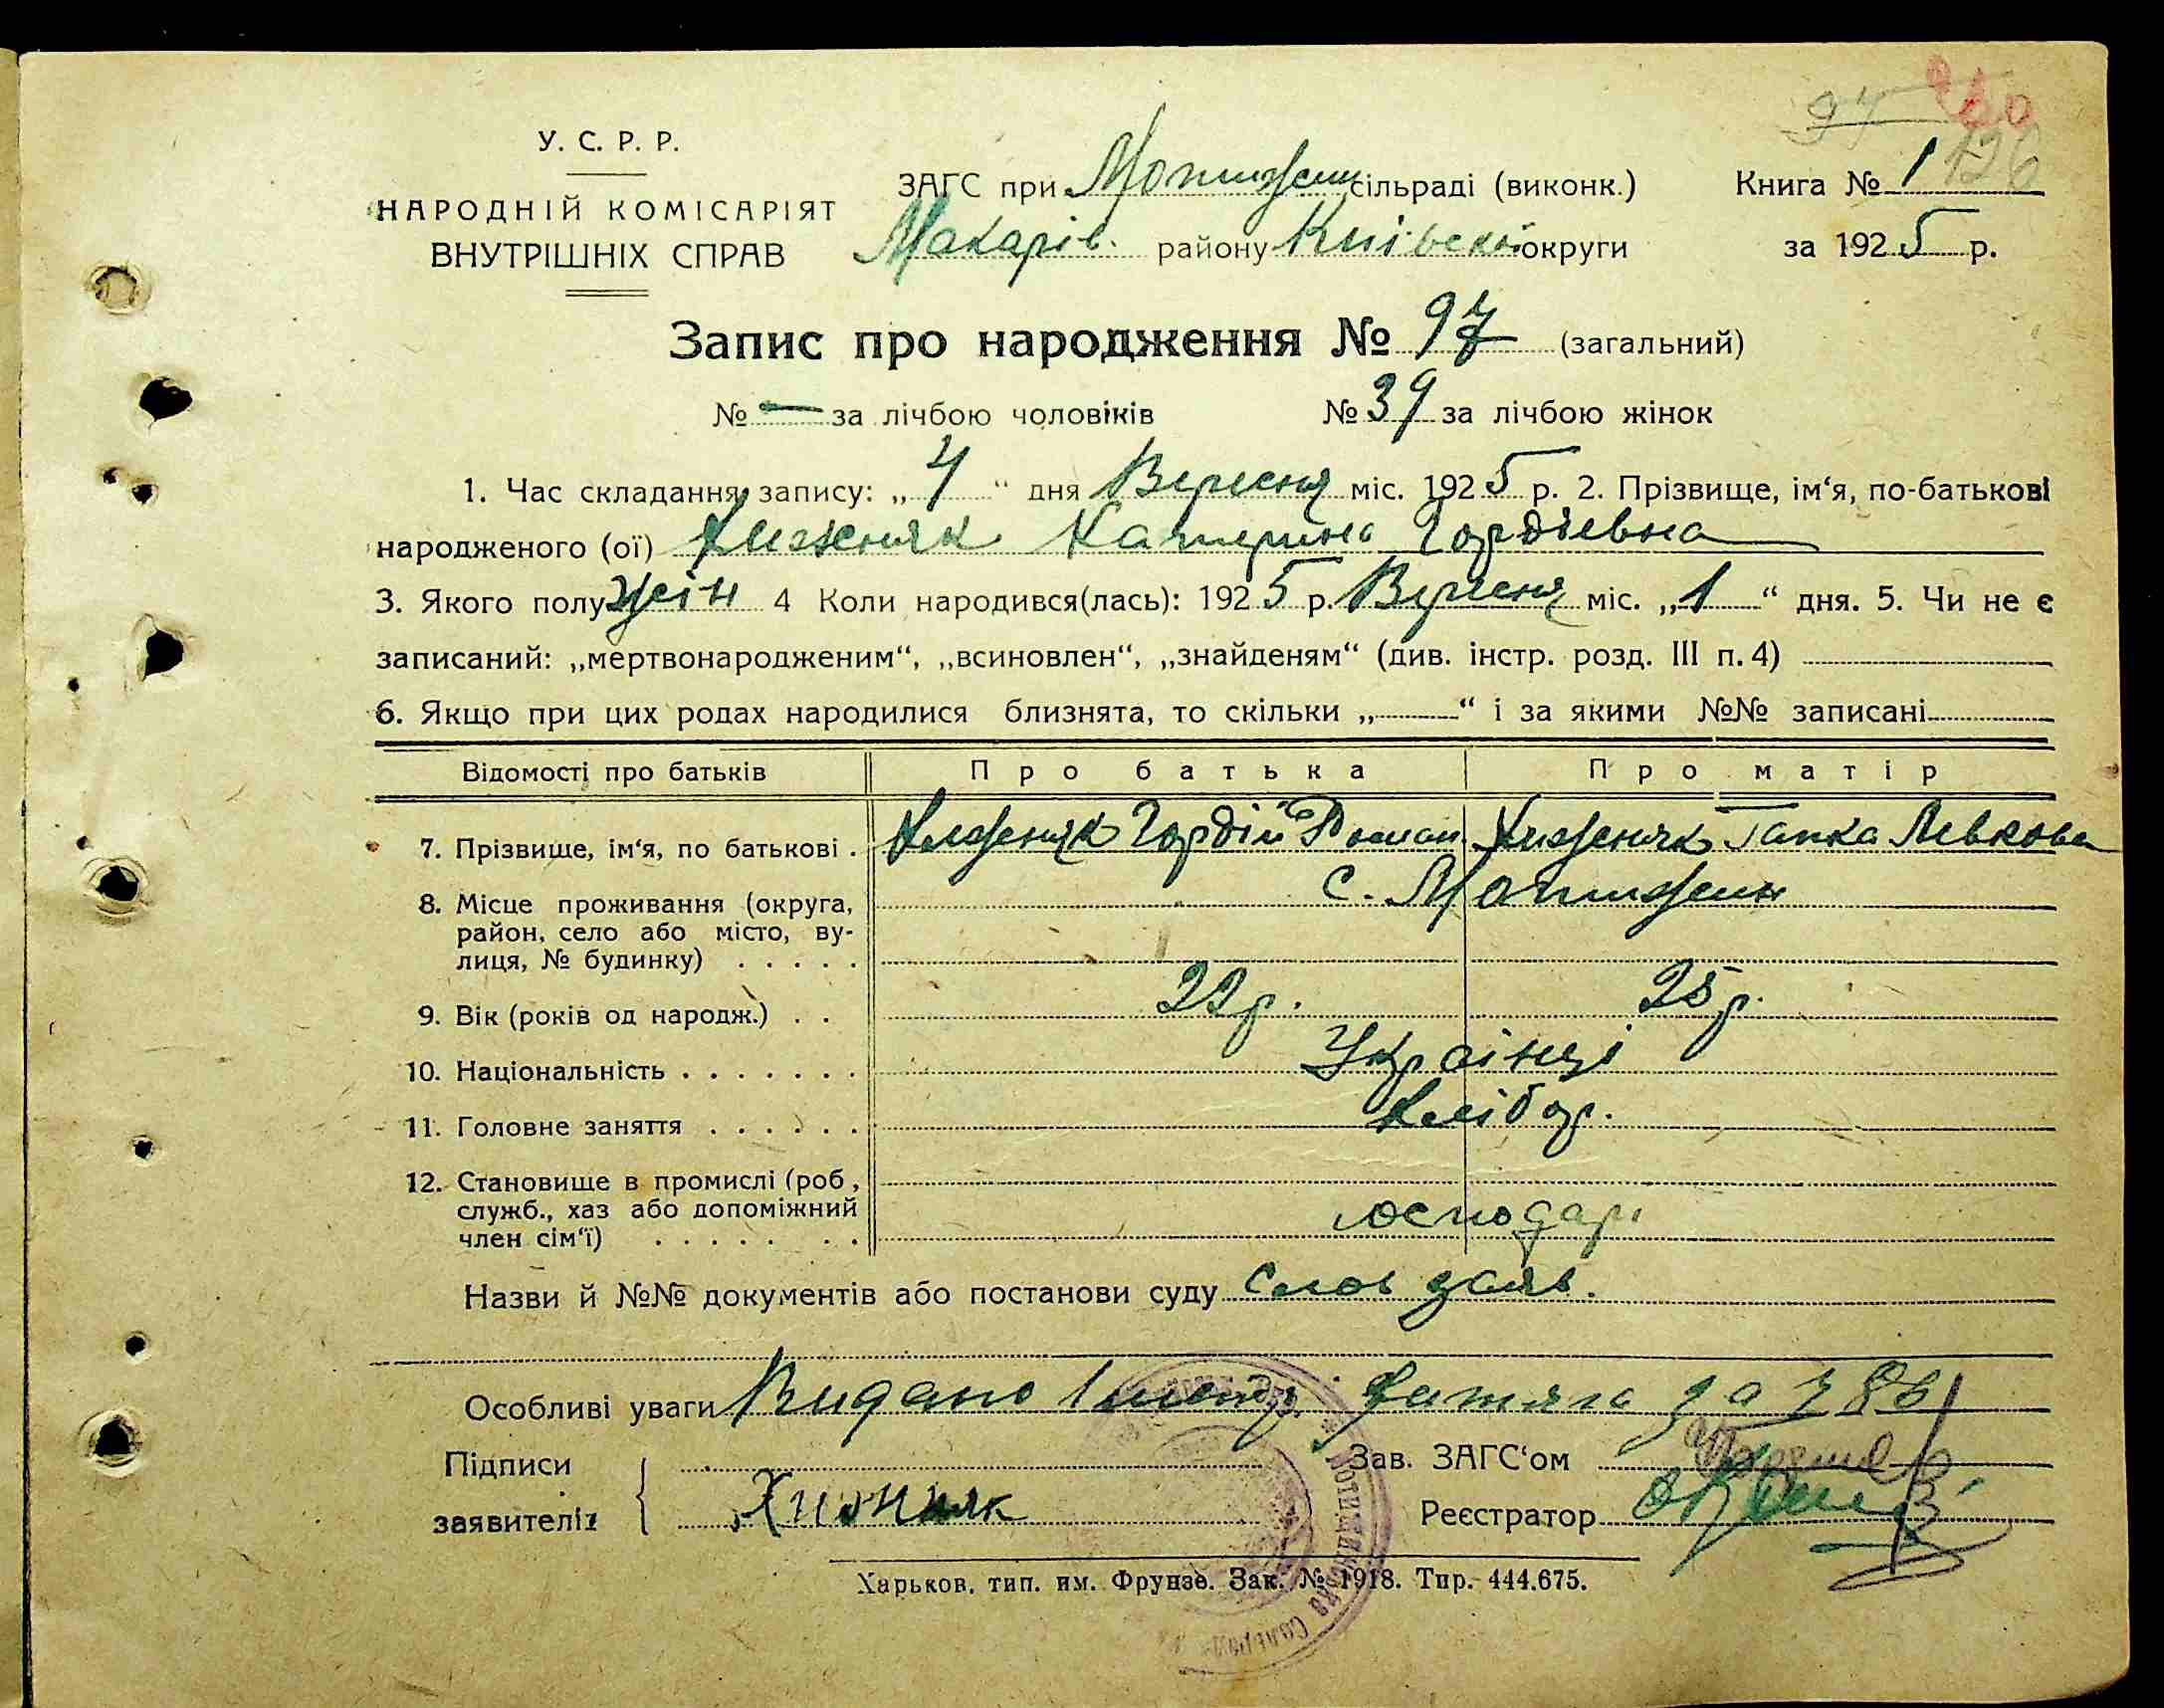 97 126
У. С. Р. Р.
НАРОДНІЙ КОМІСАРІЯТ
ВНУТРІШНІХ СПРАВ
ЗАГС при Мотижин сільраді (виконк.) Книга № 1
Макарів. району Київської округи за 1925 р.
Запис про народження № 97 (загальний)
№ — за лічбою чоловіків № 39 за лічбою жінок
1. Час складання запису: „4“ дня Вересня міс. 1925 р. 2. Прізвище, ім‘я, по-батькові
народженого (ої) Хижняк Катерина Гордіевна
3. Якого полу жін 4 Коли народився(лась): 1925 р. Вересня міс. „1“ дня. 5. Чи не є
записаний: „мертвонародженим“, „всиновлен“, „знайденям“ (див. інстр. розд. III п. 4)
6. Якщо при цих родах народилися близнята, то скільки „ “ і за якими №№ записані
Відомості про батьків Про батька Про матір
7. Прізвище, ім‘я, по батькові . Хиженяк Гордій Роман. Хиженяк Гапка Левкова
8. Місце проживання (округа, с. Мотижин
район, село або місто, ву-
лиця, № будинку) . . . . .
9. Вік (років од народж.) . . 22р. 25р.
10. Національність . . . . . . . Українці
11. Головне заняття . . . . . . Хлібор.
12. Становище в промислі (роб,
служб., хаз або допоміжний господарі
член сім‘ї) . . . . . . .
Назви й №№ документів або постанови суду Слов заяв.
Особливі уваги Видано 1 витяга за 783
Підписи Зав. ЗАГС‘ом
заявителів Хижняк Реєстратор
Харьков, тип. им. Фрунзе. Зак. № 1918. Тир. 444.675.